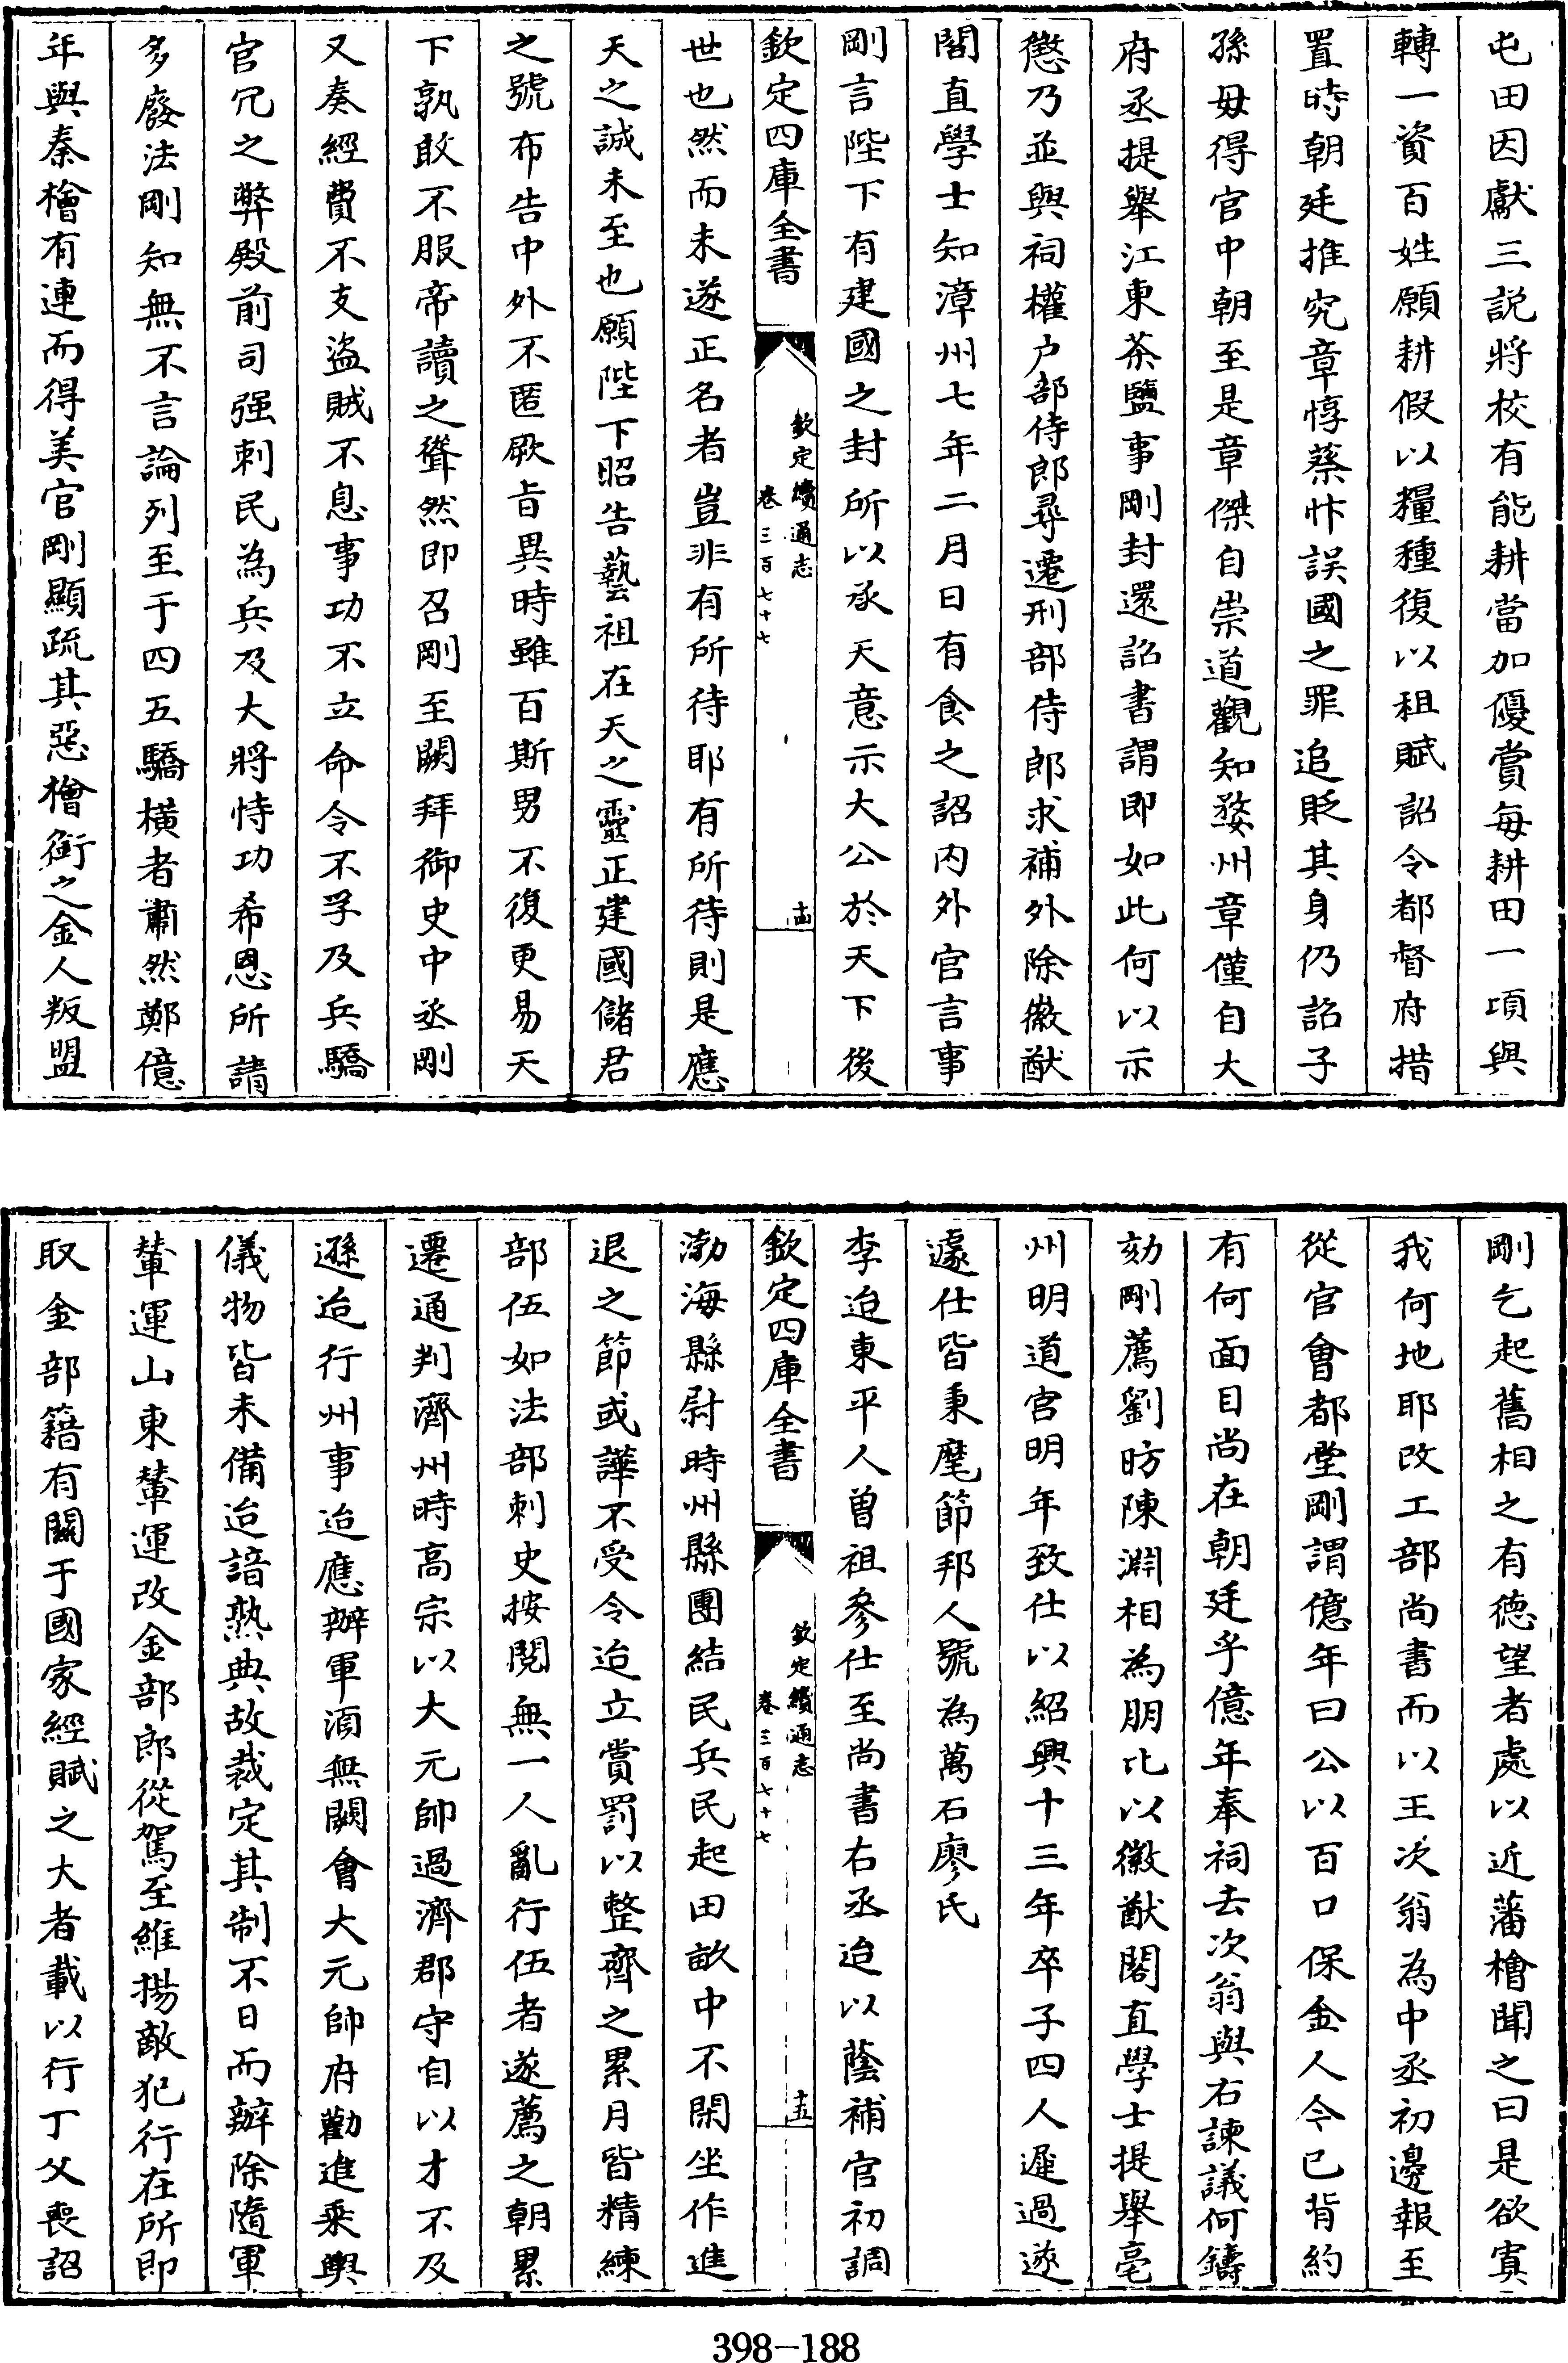 屯田因獻三説將校有能耕當加優賞每耕田一項與
轉一資百姓願耕假以糧種復以租賦詔令都督府措
置時朝廷推究章惇蔡忭誤國之罪追貶其身仍詔子
孫毋得官中朝至是章傑自崇道觀知婺州章僅自大
府丞提舉江東茶鹽事剛封還詔書謂即如此何以示
懲乃並與祠權户部侍郎尋遷刑部侍郎求補外除徽猷
閣直學士知漳州七年二月日有食之詔内外官言事
剛言陛下有建國之封所以承天意示大公於天下後
欽定四庫全書
欽定續通志
卷三百七十七
十四
世也然而未遂正名者豈非有所待耶有所待則是應
天之誠未至也願陛下昭告藝祖在天之靈正建國儲君
之號布告中外不匿厥旨異時雖百斯男不復更易天
下孰敢不服帝讀之聳然即召剛至闕拜御史中丞剛
又奏經費不支盜賊不息事功不立命令不孚及兵驕
官冗之弊殿前司强刺民為兵及大將恃功希恩所請
多廢法剛知無不言論列至于四五驕横者肅然鄭億
年與秦檜有連而得美官剛顯疏其惡檜銜之金人叛盟
剛乞起舊相之有德望者處以近藩檜聞之曰是欲寘
我何地耶改工部尚書而以王次翁為中丞初邊報至
從官會都堂剛謂億年曰公以百口保金人今已背約
有何面目尚在朝廷乎億年奉祠去次翁與右諫議何鑄
劾剛薦劉昉陳淵相為朋比以徽猷閣直學士提舉亳
州明道宫明年致仕以紹興十三年卒子四人遲過遂
遽仕皆秉麾節邦人號為萬石廖氏
李迨東平人曾祖參仕至尚書右丞迨以蔭補官初調
欽定四庫全書
欽定續通志
卷三百七十七
十五
渤海縣尉時州縣團結民兵民起田畝中不閑坐作進
退之節或譁不受令迨立賞罰以整齊之累月皆精練
部伍如法部刺史按閱無一人亂行伍者遂薦之朝累
遷通判濟州時高宗以大元帥過濟郡守自以才不及
遜迨行州事迨應辦軍須無闕會大元帥府勸進乘輿
儀物皆未備迨諳熟典故裁定其制不日而辦除隨軍
輦運山東輦運改金部郎從駕至維揚敵犯行在所即
取金部籍有關于國家經賦之大者載以行丁父喪詔
398-188